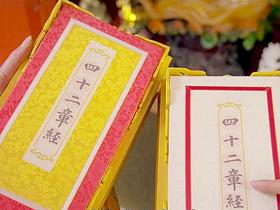 四十二章經
四十二章經